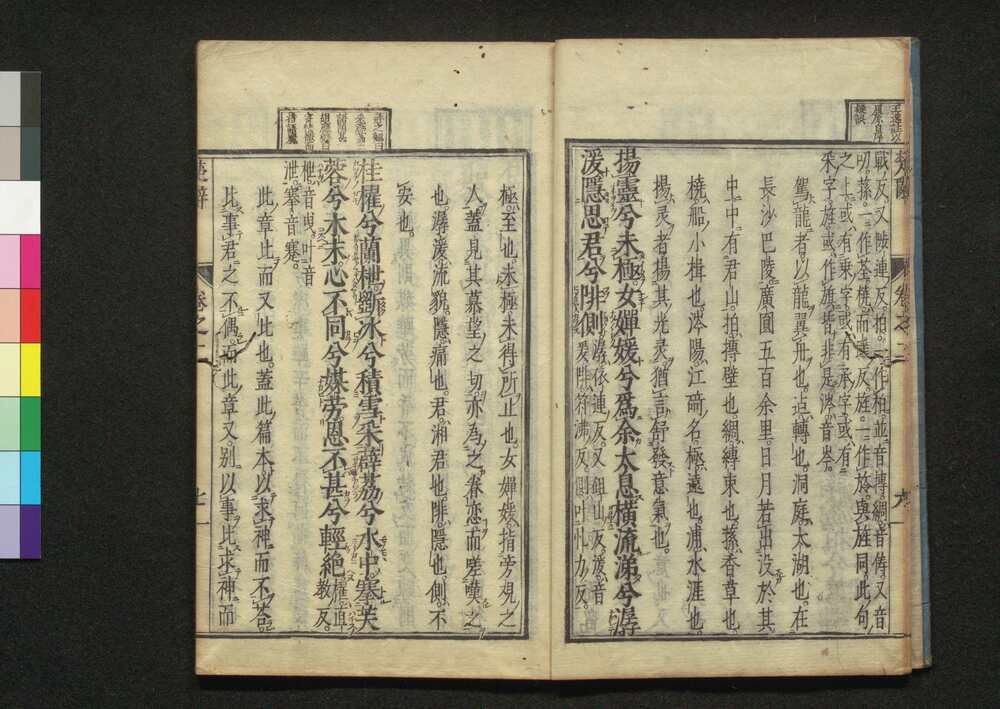 戰反又陟連反拍一作柏並音搏綢音儔又音
叨蓀一作荃橈而遙反旌一作旍與旌同此句
之上或有乘字或有承字或有
采字旌或作旗皆非是涔音岑
駕龍者以龍翼舟也邅轉也洞庭太湖也在
長沙巴陵廣圓五百余里日月若出没於其
中中有君山拍搏壁也綢縛束也蓀香草也
橈船小楫也涔陽江碕名極遠也浦水涯也
揚灵者揚其光灵猶言舒發意氣也
揚靈兮未極女嬋媛兮爲余太息橫流涕兮潺
湲隱思君兮陫側潺依連反又鉏山反湲音
爰陫符沸反側叶札力反
極至也未極未得所止也女嬋媛指旁觀之
人蓋見其慕望之切亦為之眷恋而嗟嘆之
也潺湲流貌隱痛也君湘君也陫隱也側不
安也
桂櫂兮蘭枻斵冰兮積雪采薜荔兮水中搴芙
蓉兮木末心不同兮媒劳恩不甚兮輕絶櫂直
教反
枻音曳叶音
泄搴音蹇
此章比而又比也蓋此篇本以求神而不答
比事君之不偶而此章又别以事比求神而
楚辞
卷之二